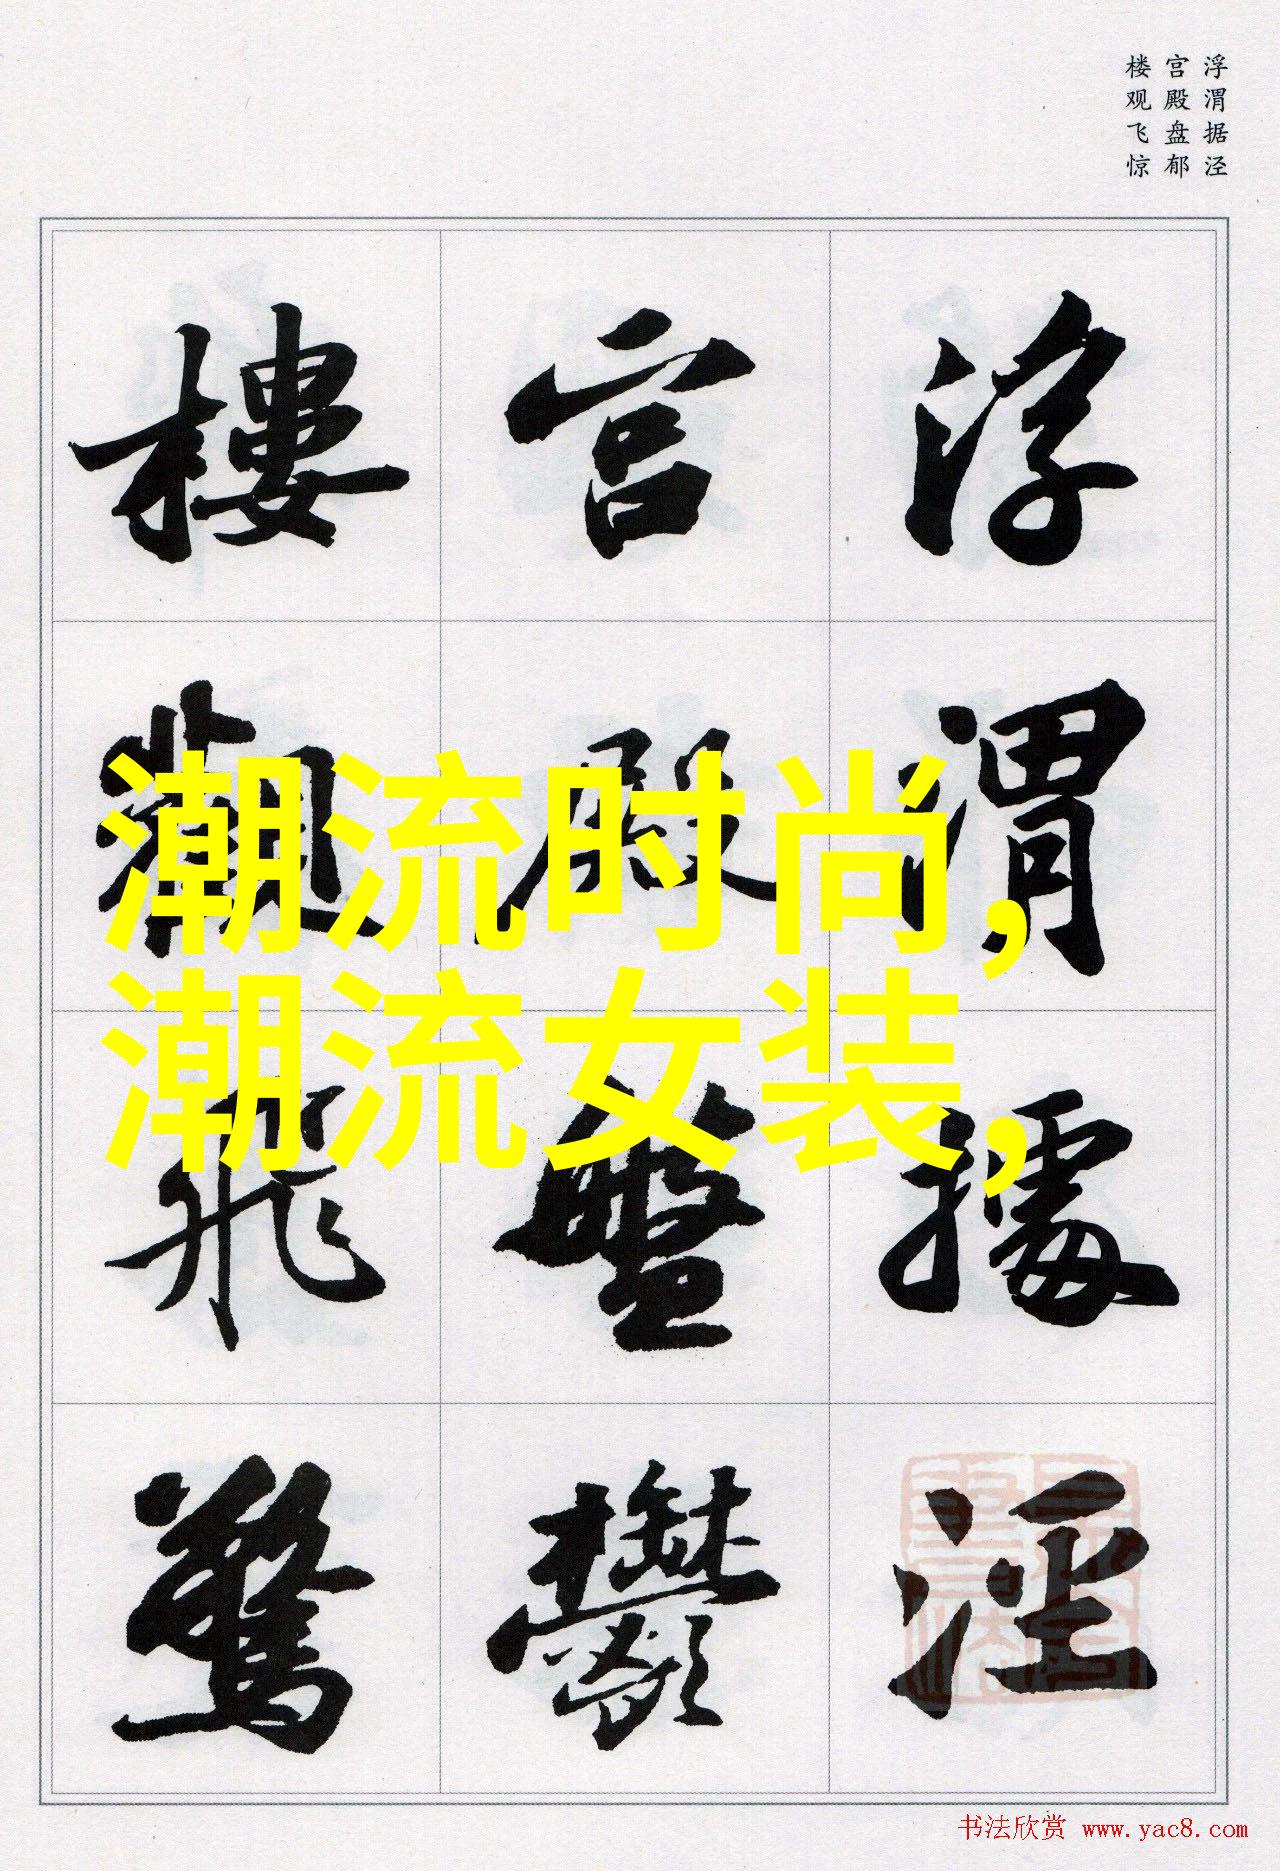 浮渭据泾
宫殿盘郁
楼观飞惊
浮渭據涇
宫殿盤鬱
樓觀飛驚
潮流时尚,
潮流女装,
书法欣赏 www.yac8.com